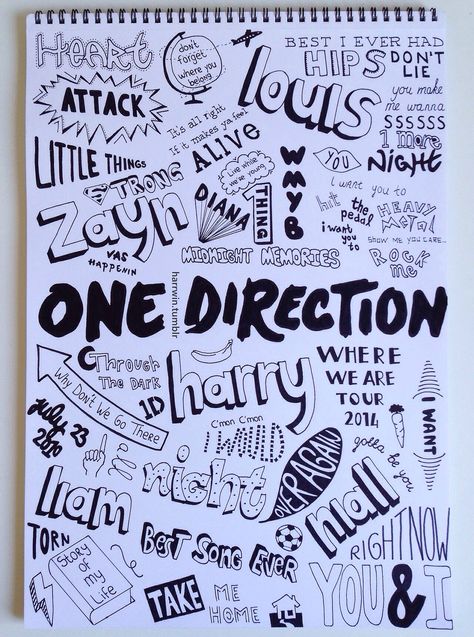 HEART
ATTACK
don't
forget
where you
belong
BEST I EVER HAD
HIPS DON'T
LIE
LOUIS
you make
me wanna
SSSSSS
It's all right
If it makes ya feel
ALIVE
1 more
NIGHT
LITTLE THINGS
STRONG
Live while
we're young
WMYB
YOU
I want you to
hit the
pedal
HEAVY
METAL
i want
you to
SHOW ME YOU CARE...
ROCK
ME
Zayn
VAS
HAPPENIN
DIANA
1
THING
MIDNIGHT MEMORIES
ONE DIRECTION
harrwin.tumblr
Through
The Dark
1D
Why Don't We Go There
harry
WHERE
WE ARE
TOUR
2014
I WANT
July 23
2010
C'mon C'mon
I WOULD
OVER AGAIN
gotta be you
liam
night
niall
TORN
Story of
my
Life
BEST SONG EVER
RIGHT NOW
TAKE ME
HOME
YOU & I